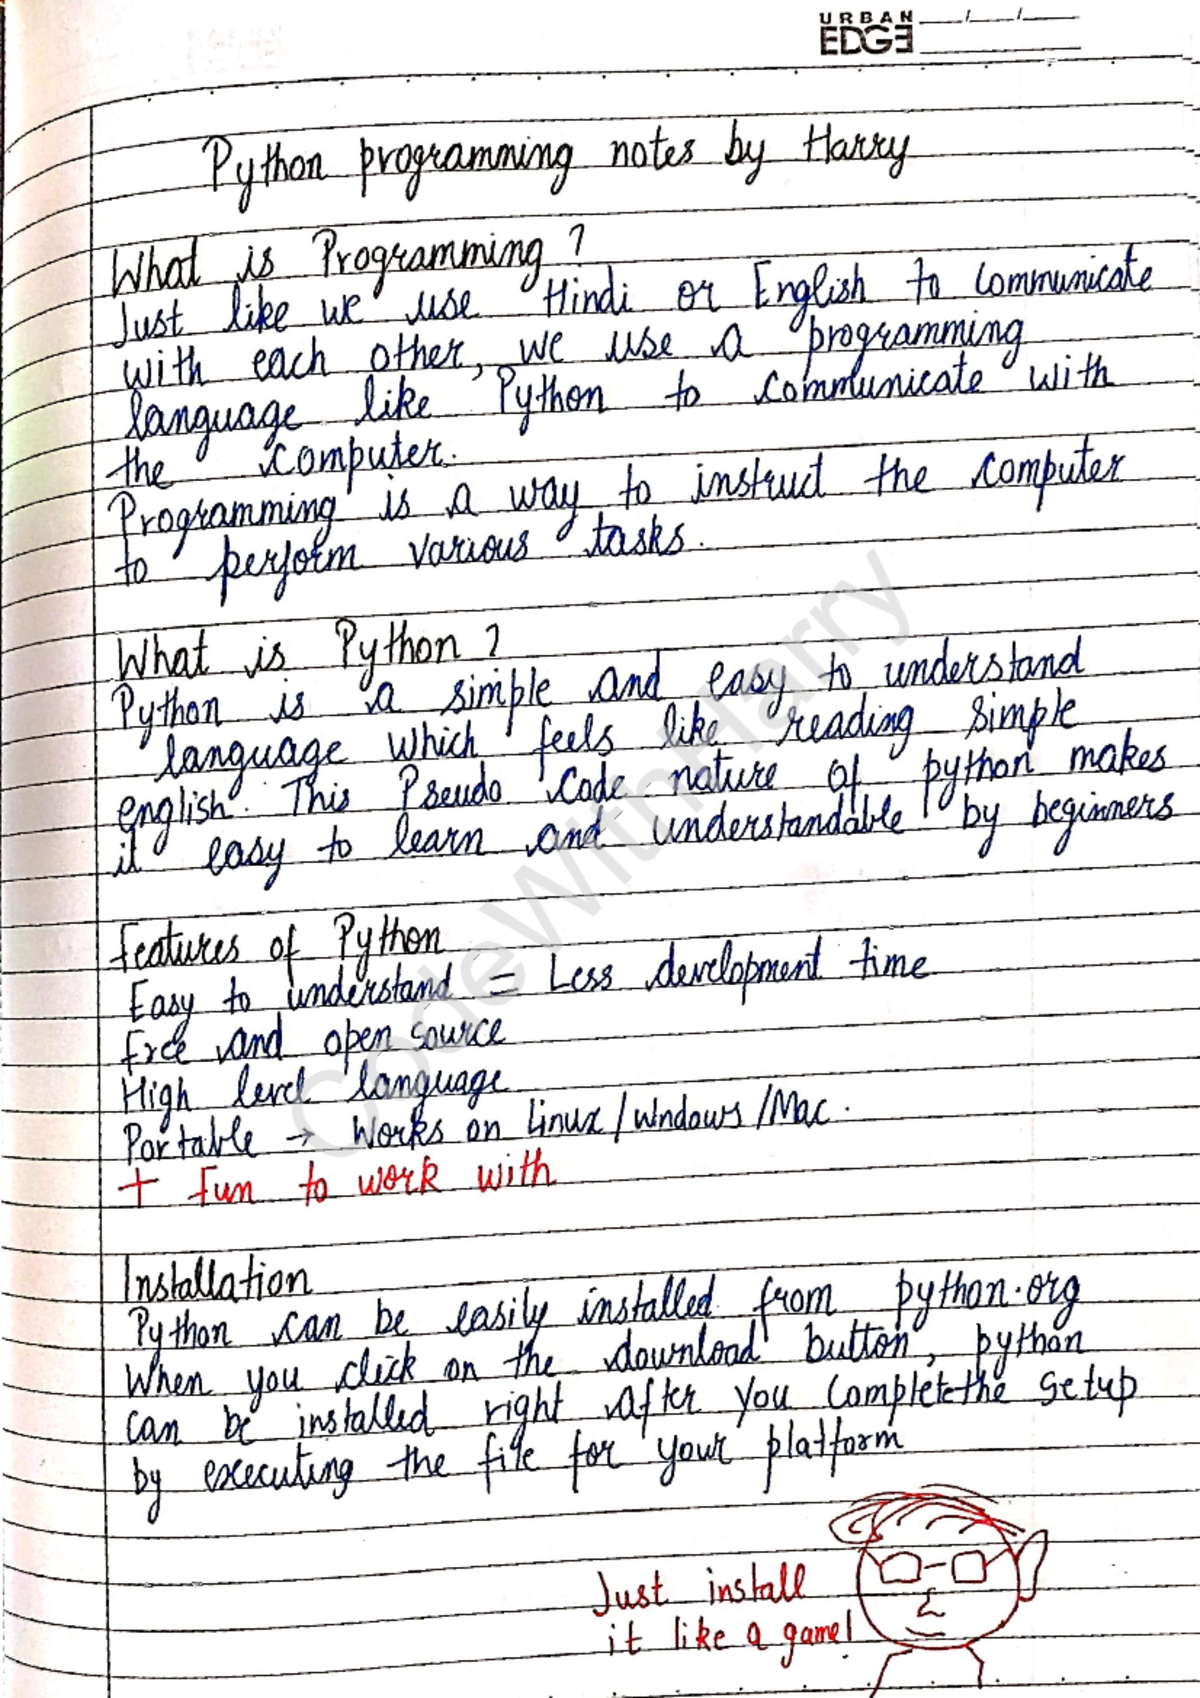 URBAN
EDGE
Python programming notes by Harry
What is Programming?
Just like we use Hindi or English to communicate
with each other, we use a programming
language like Python to communicate with
the computer.
Programming is a way to instruct the computer
to perform various tasks.
What is Python?
Python is a simple and easy to understand
language which feels like reading simple
english. This Pseudo code nature of python makes
it easy to learn and understandable by beginners
Features of Python
Easy to understand = Less development time
Free and open source
High level language
Portable → Works on Linux/Windows/Mac.
+ Fun to work with
Installation
Python can be easily installed from python.org
When you click on the download button, python
can be installed right after you complete the setup
by executing the file for your platform
Just install
it like a game!
CodeWithHarry